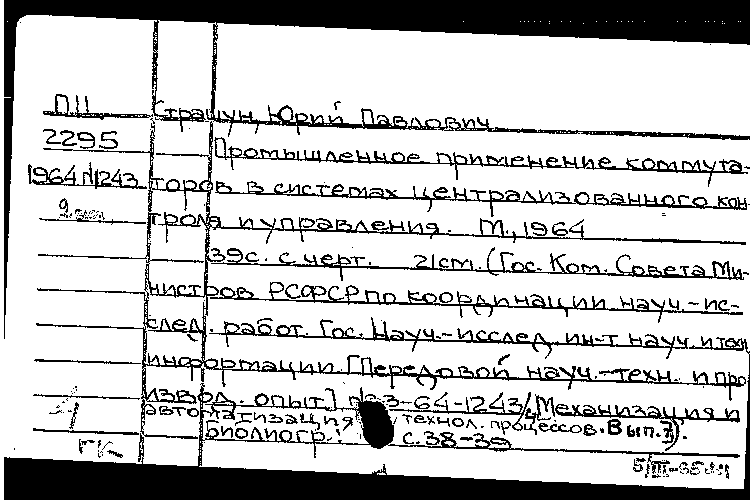 П11 Страшун, Юрий Павлович
2295 Промышленное применение коммута-
1964 №1243 торов в системах централизованного кон-
троля и управления. М., 1964
39с. с черт. 21cm. (Гос. Ком. Совета Ми-
нистров РСФСР по координации науч.-ис-
след. работ. Гос. Науч.-исслед. ин-т науч. и техн
информации. [Передовой науч.-техн. и про
извод. опыт.] №3-64-1243/4 Механизация и
автоматизация технол. процессов. Вып. 7).
библиогр.: с.38-39
ГК